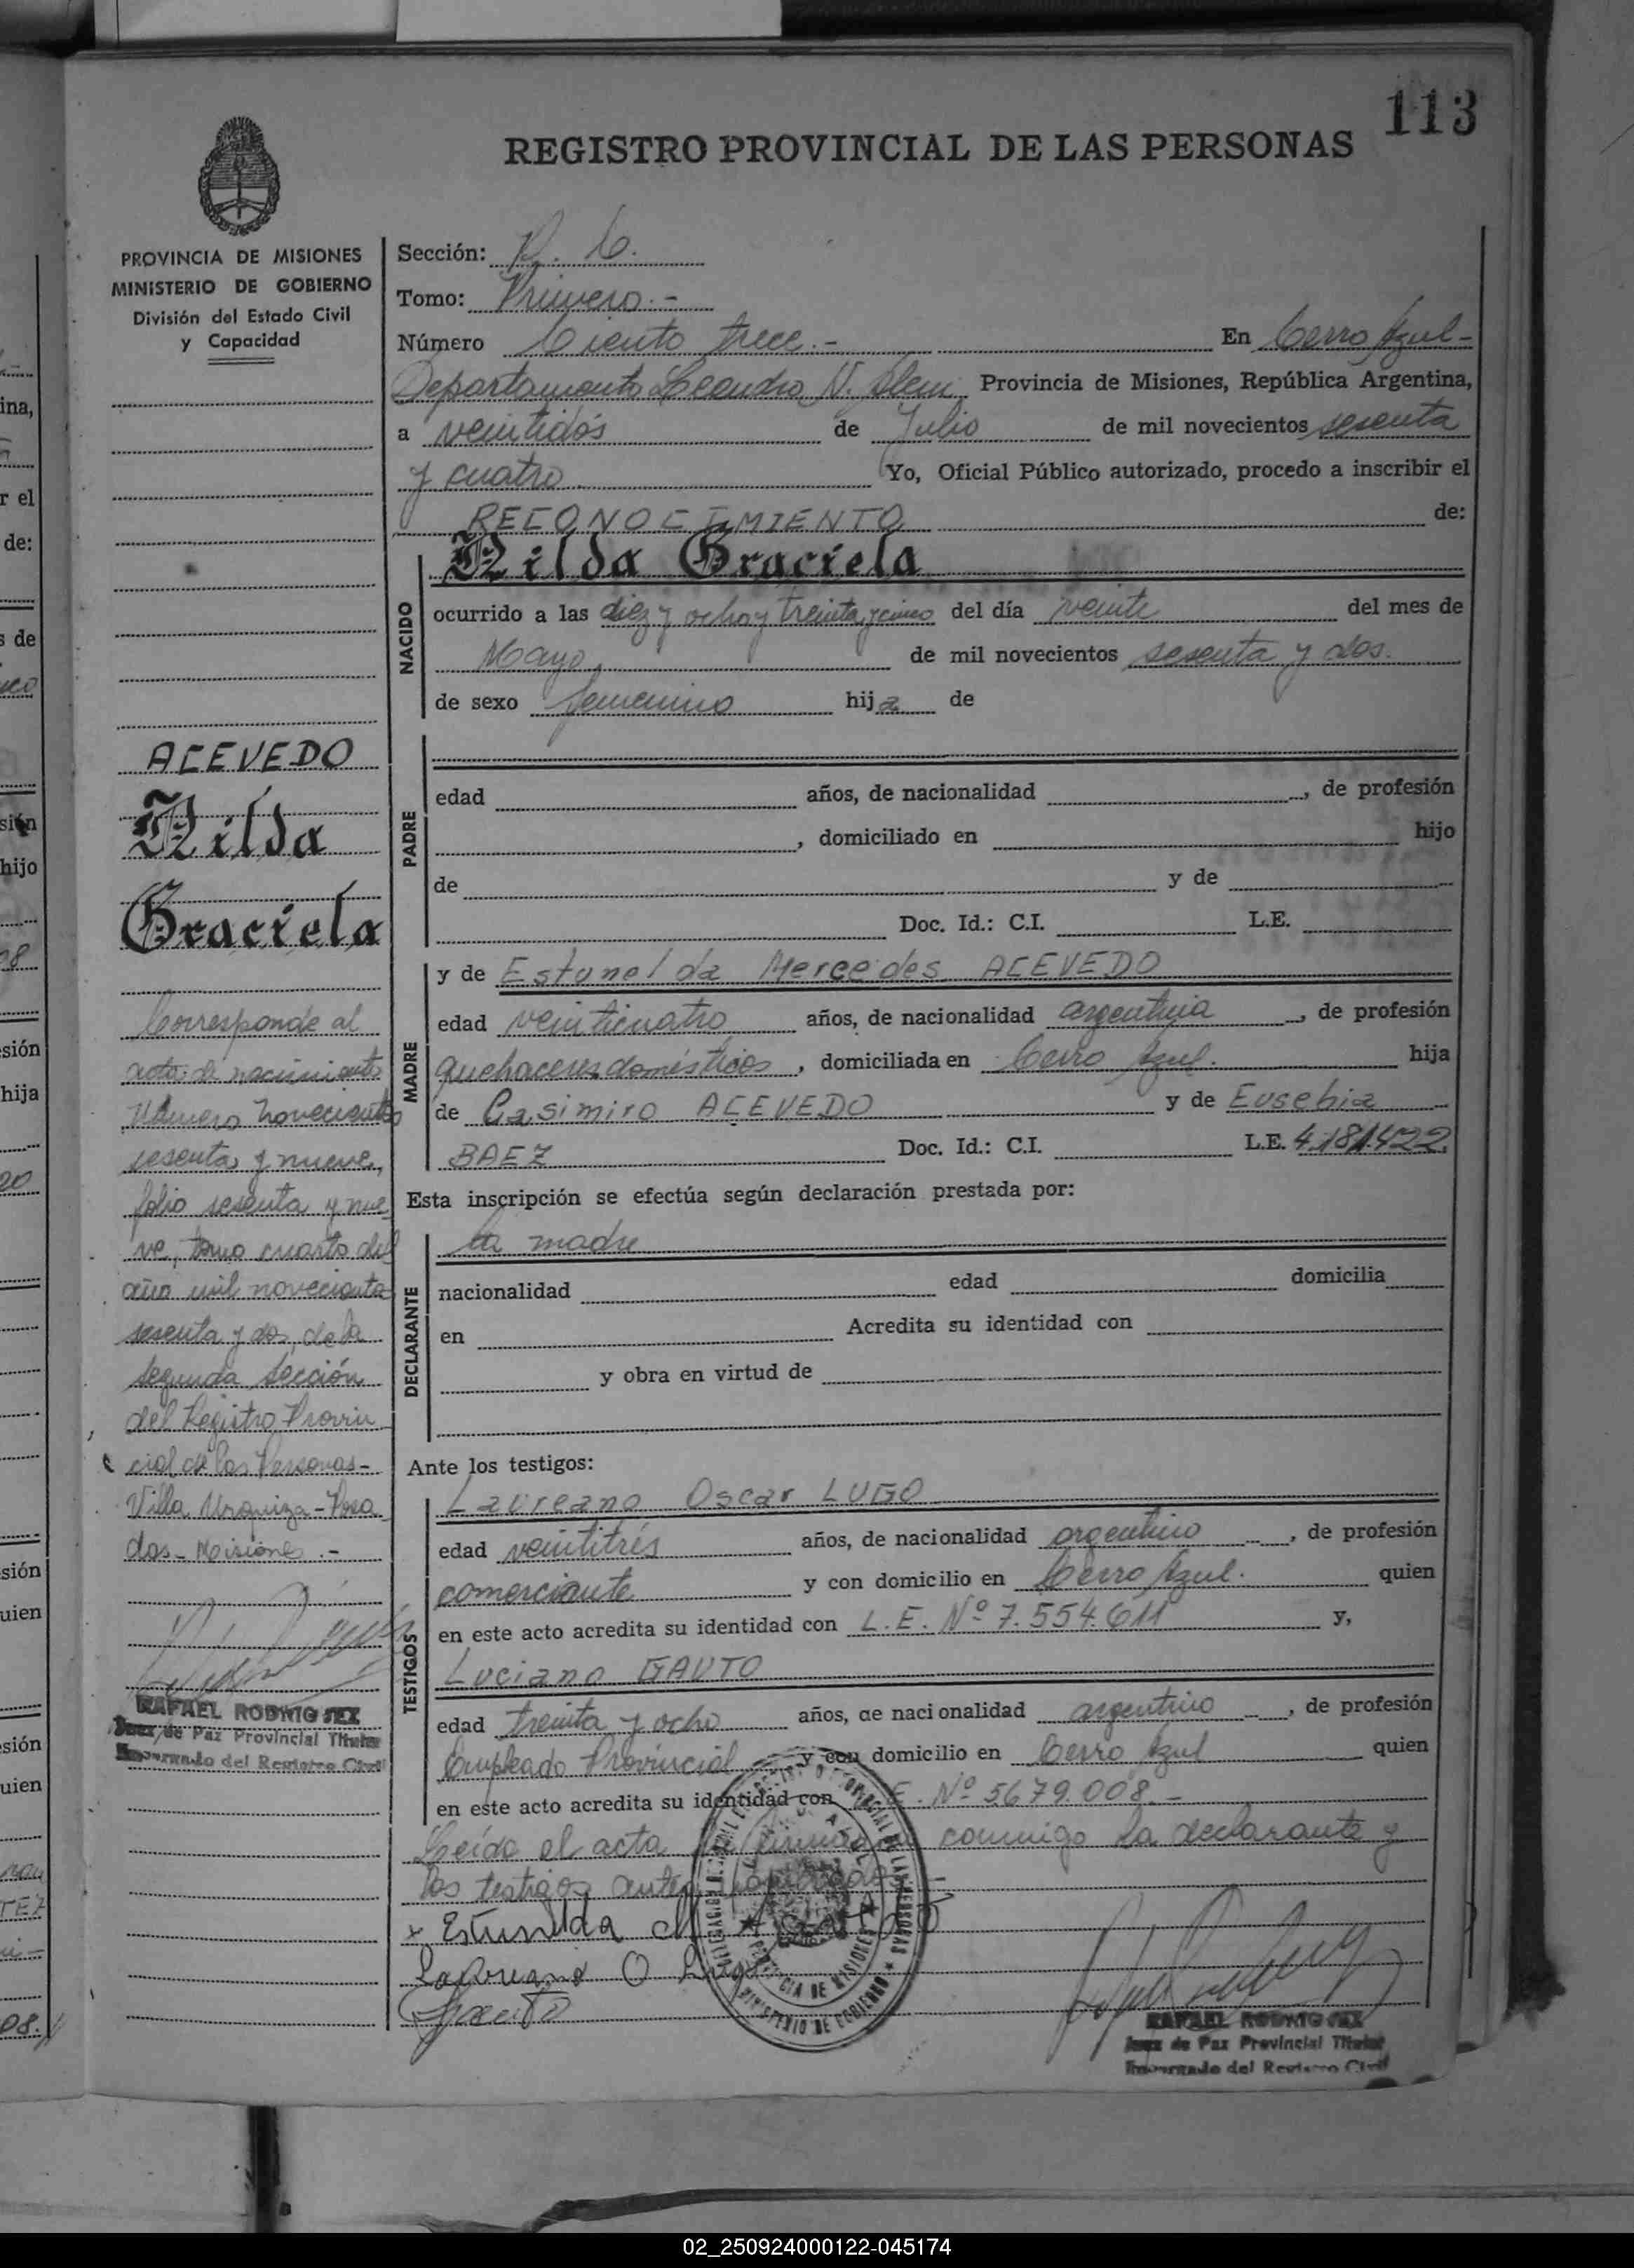 113
REGISTRO PROVINCIAL DE LAS PERSONAS
PROVINCIA DE MISIONES
MINISTERIO DE GOBIERNO
División del Estado Civil
y Capacidad
Sección: R. C.
Tomo: Primero.-
Número Ciento trece.- En Cerro Azul-
Departamento Leandro N. Alem. Provincia de Misiones, República Argentina,
a veintidós de Julio de mil novecientos sesenta
y cuatro Yo, Oficial Público autorizado, procedo a inscribir el
RECONOCIMIENTO de:
NACIDO
Nilda Graciela
ocurrido a las diez y ocho y treinta y cinco del día veinte del mes de
Mayo, de mil novecientos sesenta y dos.
de sexo femenino hija de
PADRE
edad años, de nacionalidad , de profesión
, domiciliado en hijo
de y de
Doc. Id.: C.I. L.E.
MADRE
y de Estunelda Mercedes ACEVEDO
edad veinticuatro años, de nacionalidad argentina , de profesión
quehaceres domésticos , domiciliada en Cerro Azul. hija
de Casimiro ACEVEDO y de Eusebia
BAEZ Doc. Id.: C.I. L.E. 4.181.422.
Esta inscripción se efectúa según declaración prestada por:
DECLARANTE
la madre
nacionalidad edad domicilia
en Acredita su identidad con
y obra en virtud de
Ante los testigos:
TESTIGOS
Laureano Oscar LUGO
edad veintitrés años, de nacionalidad argentino , de profesión
comerciante y con domicilio en Cerro Azul. quien
en este acto acredita su identidad con L.E. Nº 7.554.611 y,
Luciano GAUTO
edad treinta y ocho años, de nacionalidad argentino , de profesión
Empleado Provincial y con domicilio en Cerro Azul quien
en este acto acredita su identidad con E. Nº 5679.008.-
Leída el acta conmigo la declarante y
los testigos antes
Estunilda
O Lugo
Gauto
RAFAEL RODRIGUEZ
Juez de Paz Provincial Titular
Encargado del Registro Civil
ACEVEDO
Nilda
Graciela
Corresponde al
acta de nacimiento
Número novecientos
sesenta y nueve,
folio sesenta y nue
ve, tomo cuarto del
año mil novecientos
sesenta y dos, de la
segunda sección
del Registro Provin
cial de las Personas-
Villa Urquiza-Posa
das-Misiones.-
RAFAEL RODRIGUEZ
Juez de Paz Provincial Titular
Encargado del Registro Civil
02_250924000122-045174